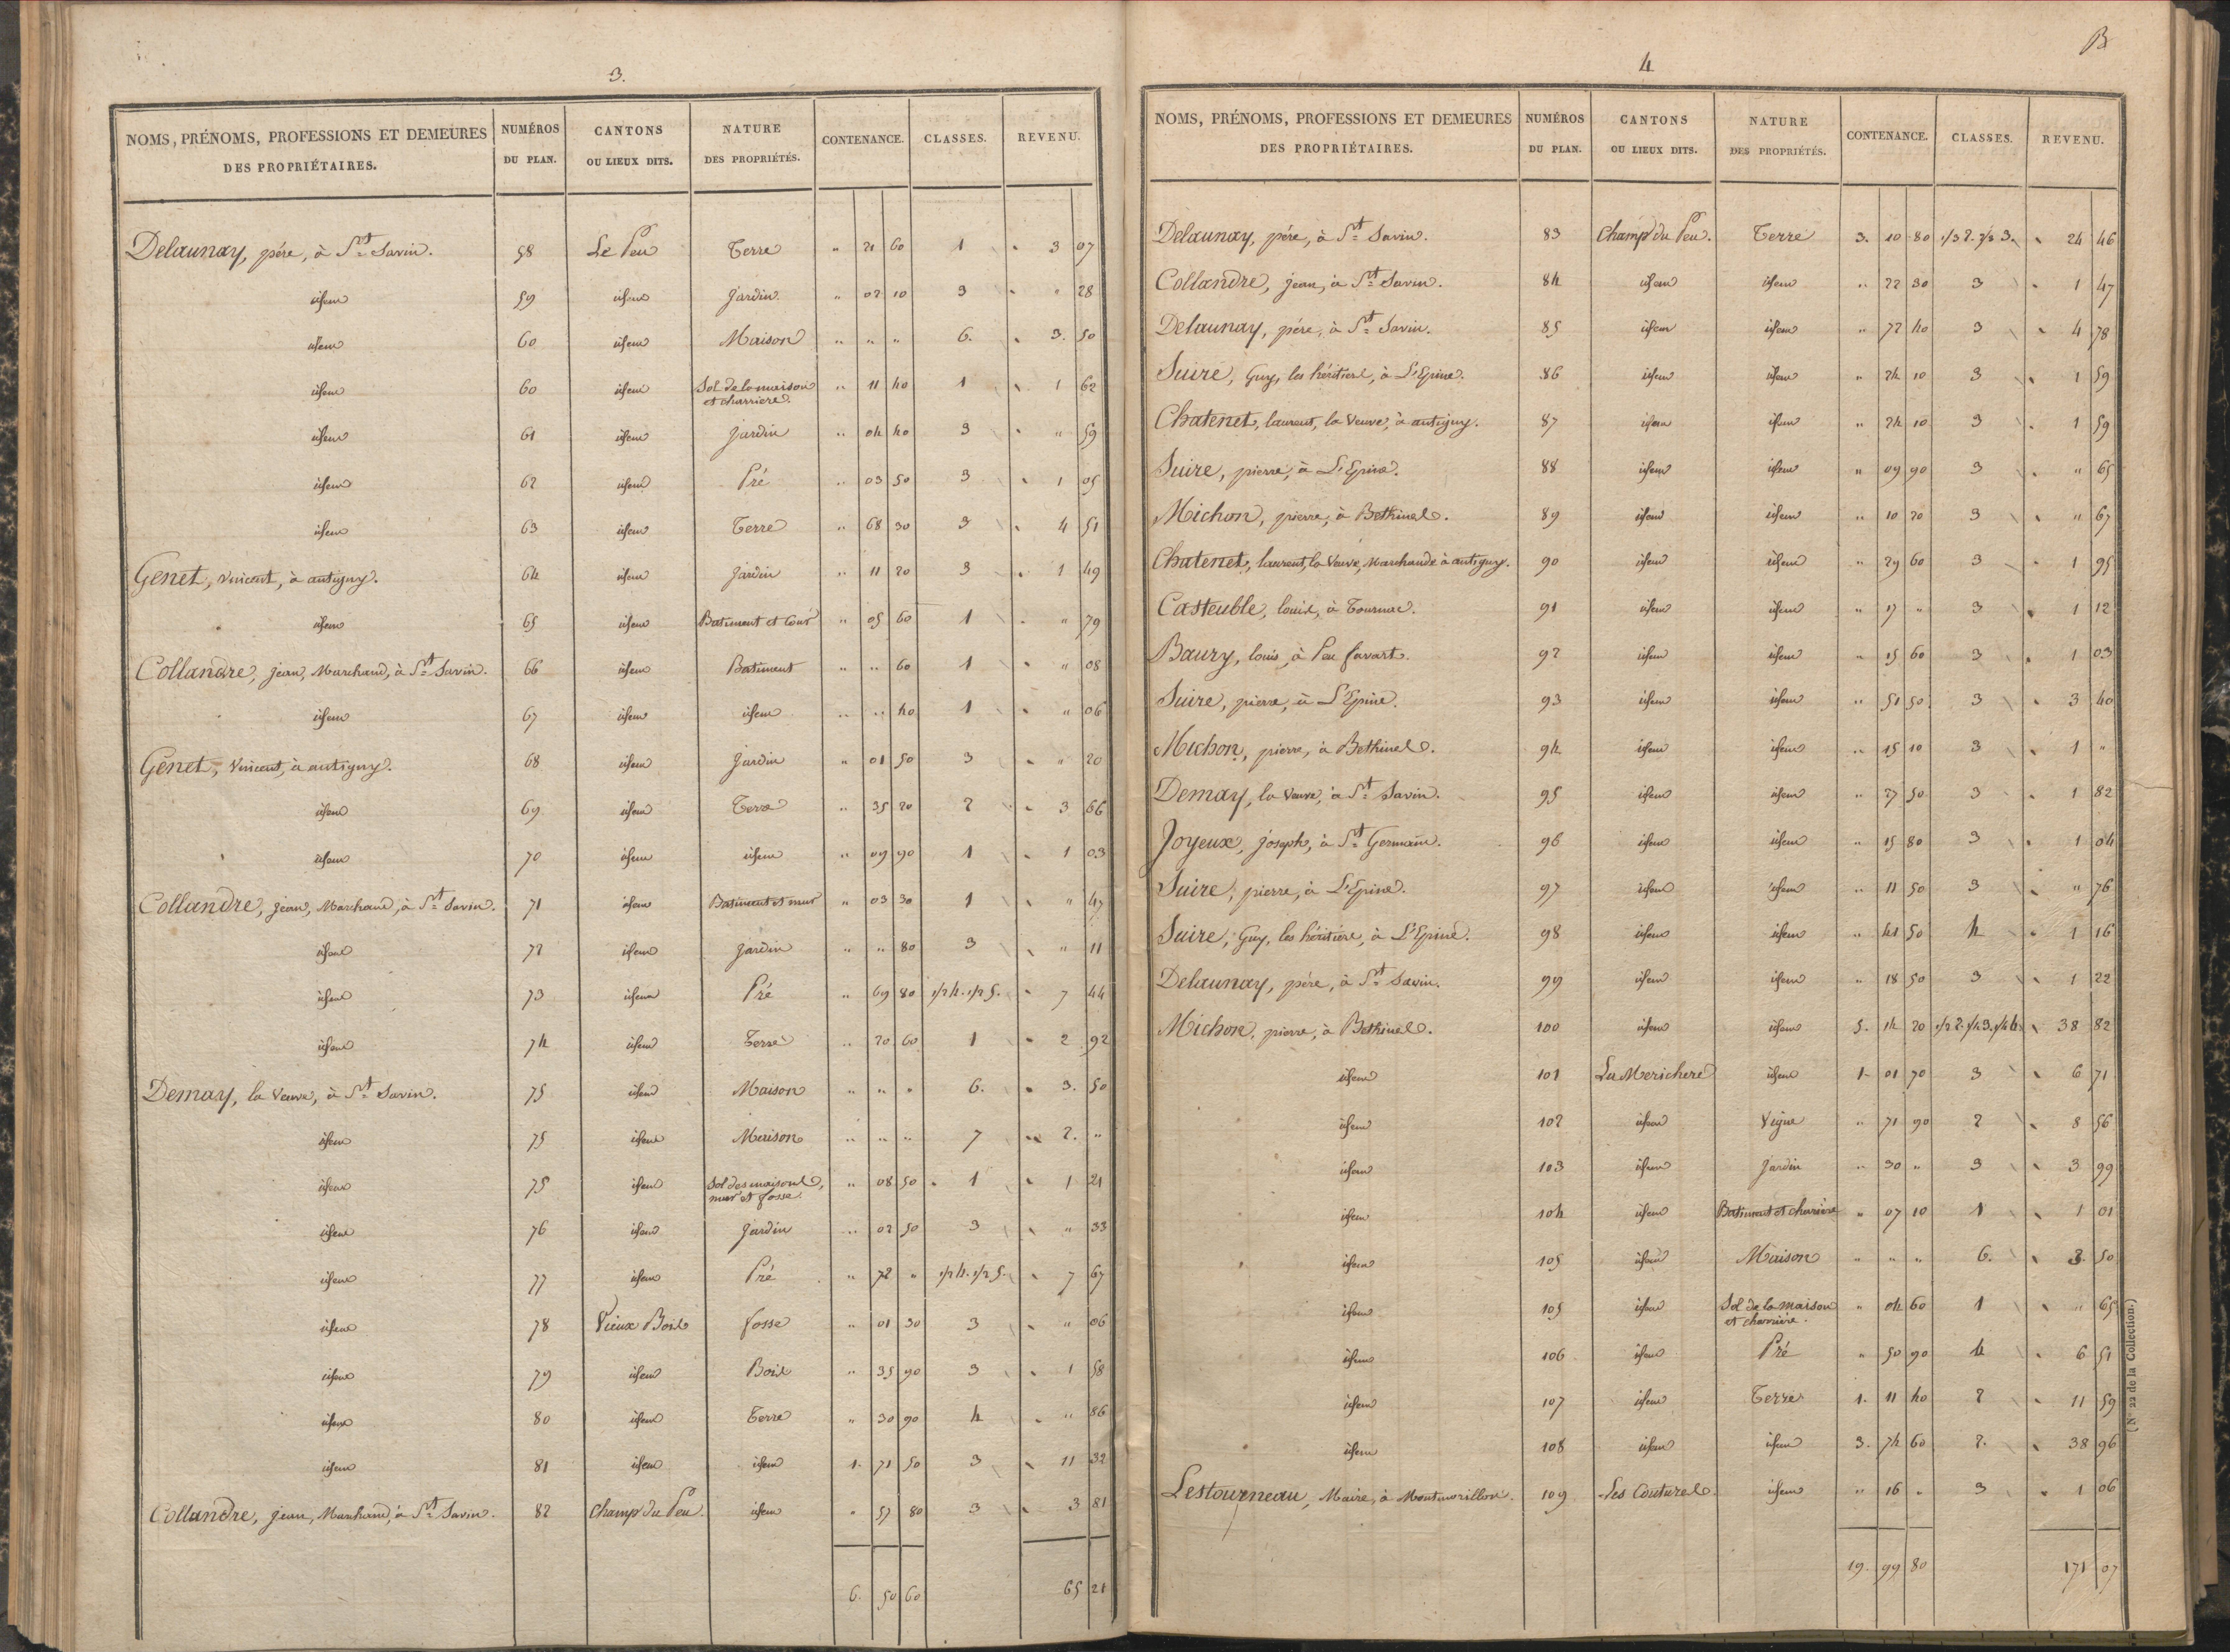 3.
NOMS, PRÉNOMS, PROFESSIONS ET DEMEURES DES PROPRIÉTAIRES. NUMÉROS DU PLAN. CANTONS OU LIEUX DITS. NATURE DES PROPRIÉTÉS. CONTENANCE. CLASSES. REVENU.
Delaunay, père, à St Savin. 58 Le Peu Terre " 21 60 1 " 3 07
idem 59 idem Jardin " 02 10 3 " " 28
idem 60 idem Maison " " " 6. " 3. 50
idem 60 idem Sol de la maison et charriere. " 11 40 1 " 1 62
idem 61 idem Jardin " 04 40 3 " " 59
idem 62 idem Pré " 03 50 3 " 1 05
idem 63 idem Terre " 68 30 3 " 4 51
Genet, Vincent, à antigny. 64 idem Jardin " 11 20 3 " 1 49
idem 65 idem Batiment et Cour " 05 60 1 " " 79
Collandre, jean, Marchand, à St Savin. 66 idem Batiment " " 60 1 " " 08
idem 67 idem idem " " 40 1 " " 06
Genet, Vincent, à antigny. 68 idem Jardin " 01 50 3 " " 20
idem 69 idem Terre " 35 20 2 " 3 66
idem 70 idem idem " 09 90 1 " 1 03
Collandre, jean, Marchand, à St Savin. 71 idem Batiment et mur " 03 30 1 " " 47
idem 72 idem Jardin " " 80 3 " " 11
idem 73 idem Pré " 69 80 1/2 4. 1/2 5. " 7 44
idem 74 idem Terre " 20 60 1 " 2 92
Demay, la Veuve, à St Savin. 75 idem Maison " " " 6. " 3. 50
idem 75 idem Maison " " " 7 " 2. "
idem 75 idem Sol des maisons, mur et fosse " 08 50 1 " 1 21
idem 76 idem Jardin " 02 50 3 " " 33
idem 77 idem Pré " 72 " 1/2 4. 1/2 5. " 7 67
idem 78 Vieux Bois fosse " 01 30 3 " " 06
idem 79 idem Bois " 35 90 3 " 1 58
idem 80 idem Terre " 30 90 4 " " 86
idem 81 idem idem 1. 71 50 3 " 11 32
Collandre, jean, Marchand, à St Savin. 82 Champ du Peu. idem " 57 80 3 " 3 81
6. 50 60 65 21
4
B
NOMS, PRÉNOMS, PROFESSIONS ET DEMEURES DES PROPRIÉTAIRES. NUMÉROS DU PLAN. CANTONS OU LIEUX DITS. NATURE DES PROPRIÉTÉS. CONTENANCE. CLASSES. REVENU.
Delaunay, père, à St Savin. 83 Champ du Peu. Terre 3. 10 80 1/3 2. 2/3 3. " 24 46
Collandre, jean, à St Savin. 84 idem idem " 22 30 3 " 1 47
Delaunay, père, à St Savin. 85 idem idem " 72 40 3 " 4 78
Suire, Guy, les héritiers, à L'Epine. 86 idem idem " 24 10 3 " 1 59
Chatenet, laurent, la Veuve, à antigny. 87 idem idem " 24 10 3 " 1 59
Suire, pierre, à L'Epine. 88 idem idem " 09 90 3 " " 65
Michon, pierre, à Bethines. 89 idem idem " 10 20 3 " " 67
Chatenet, laurent, la Veuve, Marchande à antigny. 90 idem idem " 29 60 3 " 1 95
Casteuble, louis, à Tournac. 91 idem idem " 17 " 3 " 1 12
Baury, louis, à Peu favart. 92 idem idem " 15 60 3 " 1 03
Suire, pierre, à L'Epine. 93 idem idem " 51 50 3 " 3 40
Michon, pierre, à Bethines. 94 idem idem " 15 10 3 " 1 "
Demay, la Veuve, à St Savin. 95 idem idem " 27 50 3 " 1 82
Joyeux, joseph, à St Germain. 96 idem idem " 15 80 3 " 1 04
Suire, pierre, à L'Epine. 97 idem idem " 11 50 3 " " 76
Suire, Guy, les héritiers, à L'Epine. 98 idem idem " 41 50 4 " 1 16
Delaunay, père, à St Savin. 99 idem idem " 18 50 3 " 1 22
Michon, pierre, à Bethines. 100 idem idem 5. 14 20 1/2 2. 1/4 3. 1/4 4. " 38 82
idem 101 La Merichere idem 1 01 70 3 " 6 71
idem 102 idem Vigne " 71 90 2 " 8 56
idem 103 idem Jardin " 30 " 3 " 3 99
idem 104 idem Batiment et charriere " 07 10 1 " 1 01
idem 105 idem Maison " " " 6. " 3. 50
idem 105 idem Sol de la maison et charriere. " 04 60 1 " " 65
idem 106 idem Pré " 50 90 4 " 6 51
idem 107 idem Terre 1. 11 40 2 " 11 59
idem 108 idem idem 3. 74 60 2. " 38 96
Lestourneau, Maire, à Montmorillon. 109 Les Coutures idem " 16 " 3 " 1 06
19. 99 80 171 07
(N° 22 de la Collection.)